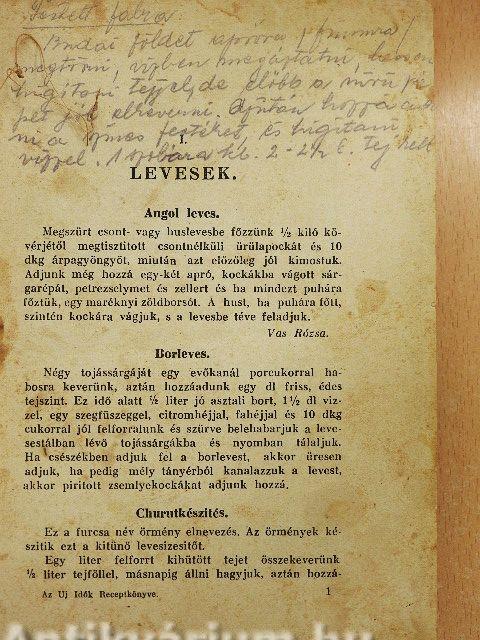 Festett falra
Budai földet apróra /finomra/
megtörni, vízben megáztatni,
hígítani tejjel, de előbb a
jól elkeverni. Azután hozzá
ni a színes festéket, és hígítani
vízzel. 1 szobára kb. 2-2½ l. tej kell
I.
LEVESEK.
Angol leves.
Megszürt csont- vagy huslevesbe főzzünk ½ kiló kö-
vérjétől megtisztitott csontnélküli ürülapockát és 10
dkg árpagyöngyöt, miután azt előzőleg jól kimostuk.
Adjunk még hozzá egy-két apró, kockákba vágott sár-
garépát, petrezselymet és zellert és ha mindezt puhára
főztük, egy maréknyi zöldborsót. A hust, ha puhára főtt,
szintén kockára vágjuk, s a levesbe téve feladjuk.
Vas Rózsa.
Borleves.
Négy tojássárgáját egy evőkanál porcukorral ha-
bosra keverünk, aztán hozzáadunk egy dl friss, édes
tejszint. Ez idő alatt ½ liter jó asztali bort, 1½ dl viz-
zel, egy szegfüszeggel, citromhéjjal, fahéjjal és 10 dkg
cukorral jól felforralunk és szürve belehabarjuk a leve-
sestálban lévő tojássárgákba és nyomban tálaljuk.
Ha csészékben adjuk fel a borlevest, akkor üresen
adjuk, ha pedig mély tányérból kanalazzuk a levest,
akkor piritott zsemlyekockákat adjunk hozzá.
Churutkészités.
Ez a furcsa név örmény elnevezés. Az örmények ké-
szitik ezt a kitünő levesizesitőt.
Egy liter felforrt kihütött tejet összekeverünk
½ liter tejföllel, másnapig állni hagyjuk, aztán hozzá-
Az Uj Idők Receptkönyve. 1
Antikvárium.hu